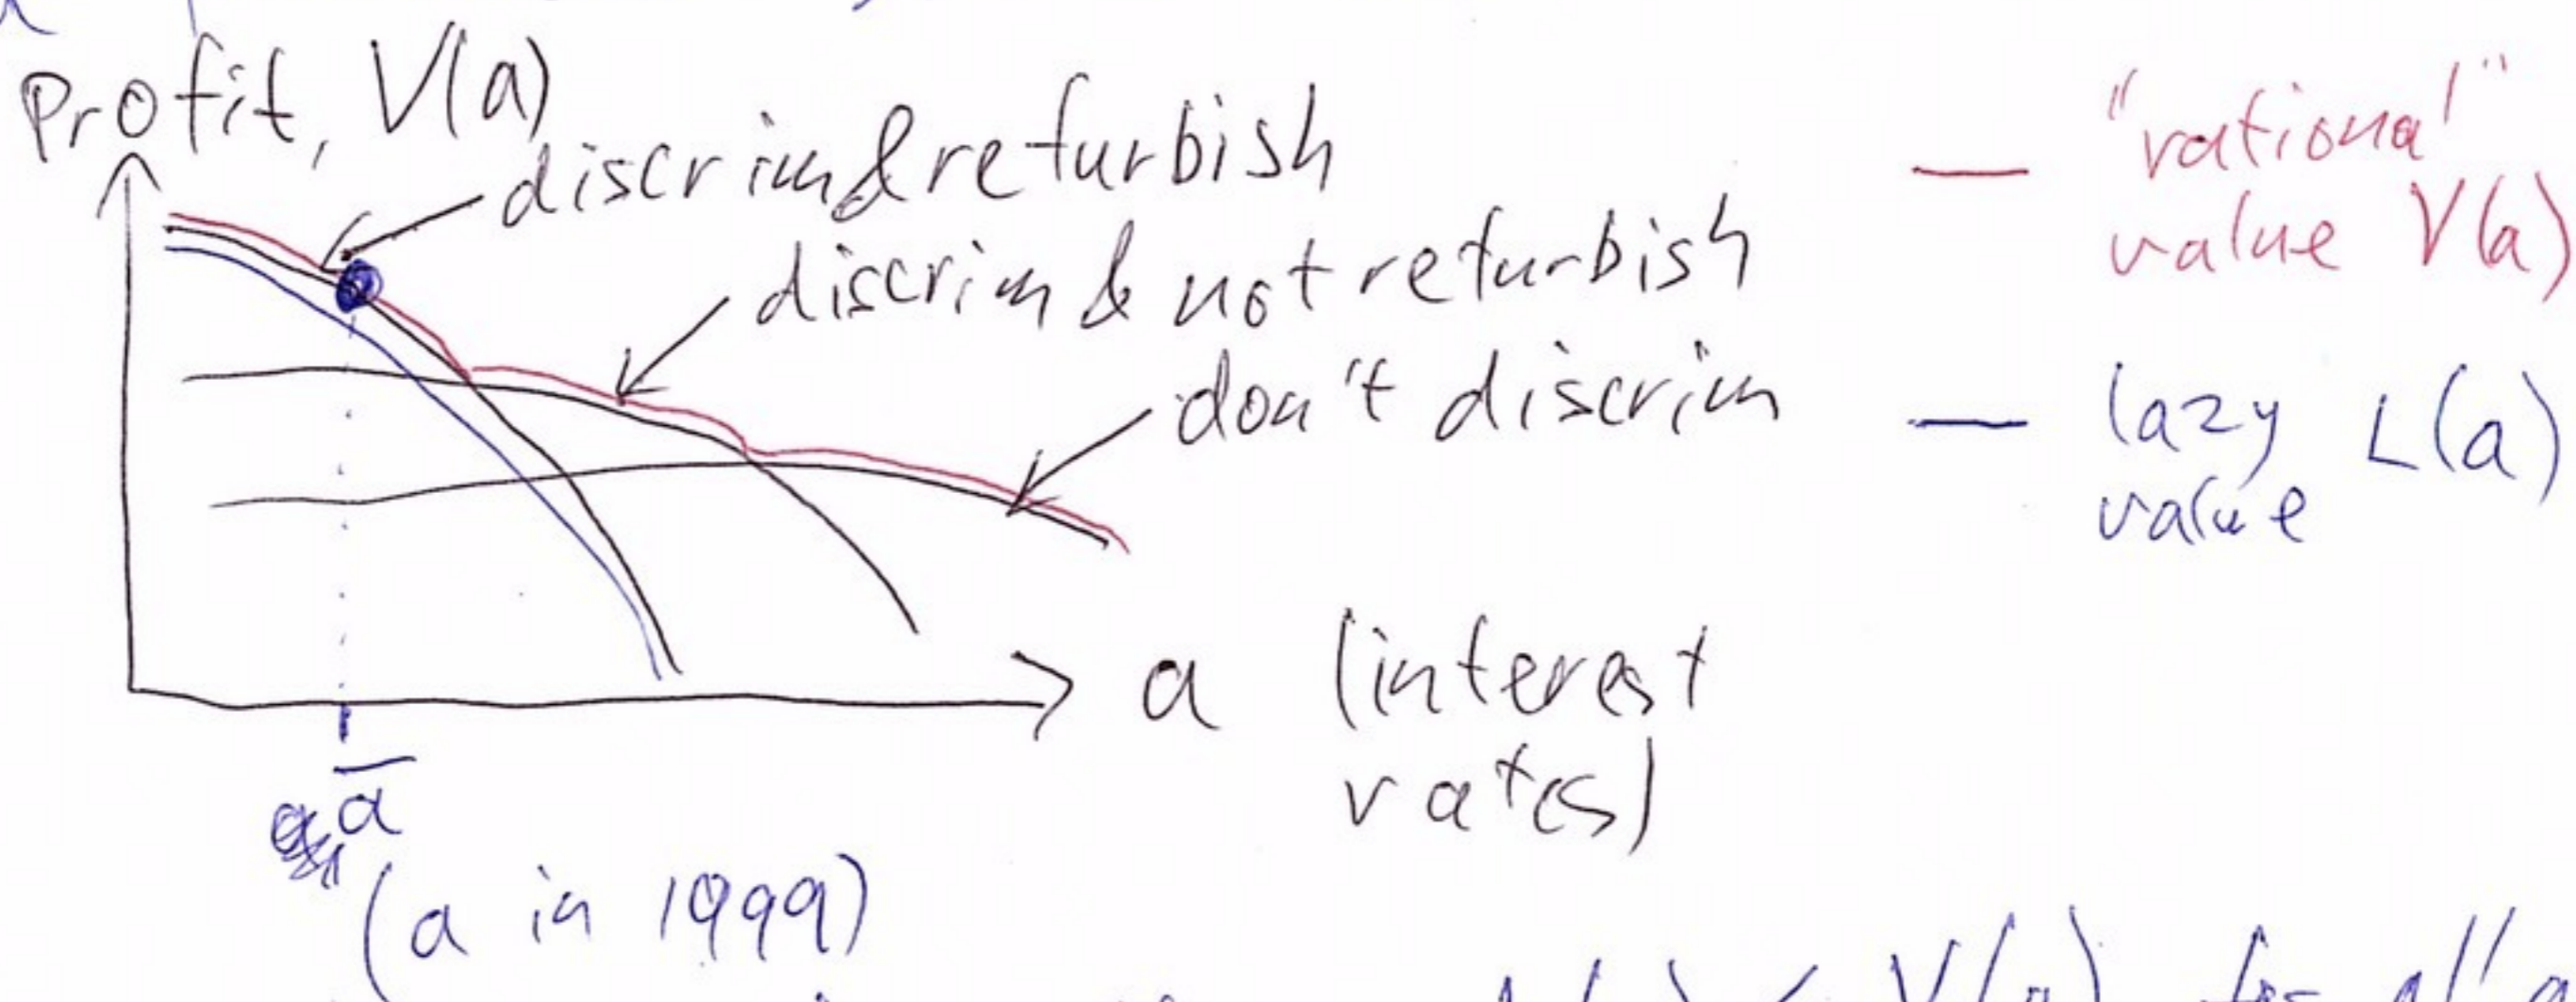 Profit, V(a)
discrim & refurbish
discrim & not refurbish
don't discrim
"rational"
value V(a)
lazy L(a)
value
a (interest
rates)
a̅
(a in 1999)
≤ V(a) for all a